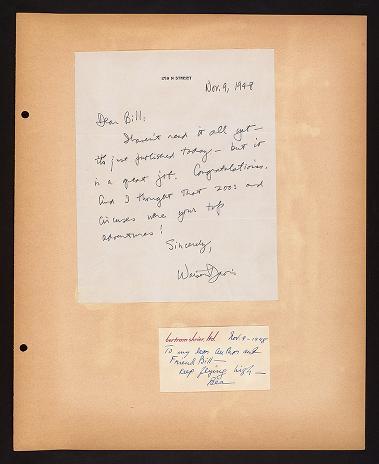 1719 N STREET
Nov. 9, 1948
Dear Bill:
I haven't read it all yet—
it's just published today — but it
is a great job. Congratulations.
And I thought that zoos and
circuses were your top
adventures!
Sincerely,
Watson Davis
Nov. 9 - 1948
To my dear author and
Friend Bill—
Keep flying high—
Bea